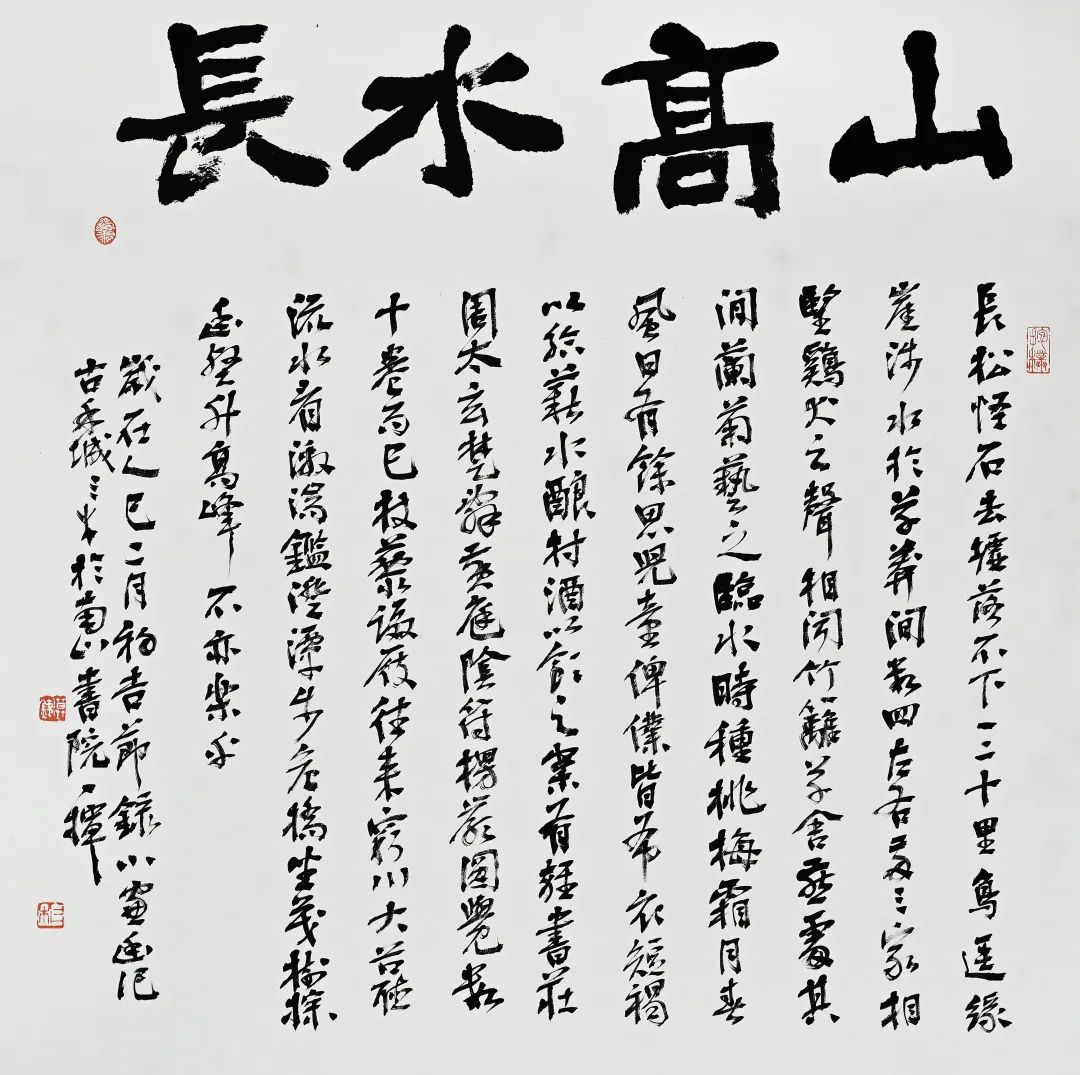 山高水長
長松怪石去墟落不下一二十里鳥逕緣
崖涉水於草莽間數四左右兩三家相
望鷄犬之聲相聞竹籬草舍燕處其
間蘭菊藝之臨水時種桃梅霜月春
風日有餘思兒童俾僕皆布衣短褐
以給薪水釀村酒以飲之案有雜書莊
周太玄楚辭黃庭陰符楞嚴圓覺數
十卷而已杖藜躡屐往來窮川大谷聽
流水看激湍鑑澄潭步危橋坐茂樹探
幽壑升高峰不亦樂乎
歲在乙巳二月初吉節錄小窗幽記
古城於書院